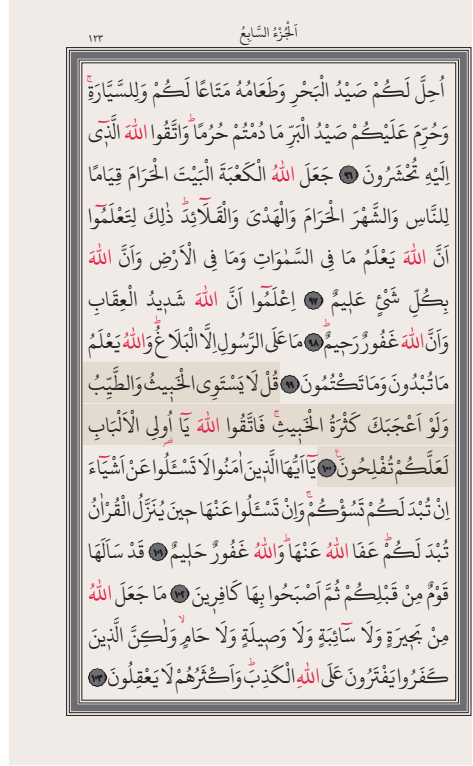 اَلْجُزْءُ السَّابِعُ
١٢٣
اُحِلَّ لَكُمْ صَيْدُ الْبَحْرِ وَطَعَامُهُ مَتَاعًا لَكُمْ وَلِلسَّيَّارَةِۚ
وَحُرِّمَ عَلَيْكُمْ صَيْدُ الْبَرِّ مَا دُمْتُمْ حُرُمًاۜ وَاتَّقُوا اللّٰهَ الَّذٖٓى
اِلَيْهِ تُحْشَرُونَ ﴿٩٦﴾ جَعَلَ اللّٰهُ الْكَعْبَةَ الْبَيْتَ الْحَرَامَ قِيَامًا
لِلنَّاسِ وَالشَّهْرَ الْحَرَامَ وَالْهَدْىَ وَالْقَلَٓائِدَۜ ذٰلِكَ لِتَعْلَمُٓوا
اَنَّ اللّٰهَ يَعْلَمُ مَا فِى السَّمٰوَاتِ وَمَا فِى الْاَرْضِ وَاَنَّ اللّٰهَ
بِكُلِّ شَىْءٍ عَلٖيمٌ ﴿٩٧﴾ اِعْلَمُٓوا اَنَّ اللّٰهَ شَدٖيدُ الْعِقَابِ
وَاَنَّ اللّٰهَ غَفُورٌ رَحٖيمٌۜ ﴿٩٨﴾ مَا عَلَى الرَّسُولِ اِلَّا الْبَلَاغُۜ وَاللّٰهُ يَعْلَمُ
مَا تُبْدُونَ وَمَا تَكْتُمُونَ ﴿٩٩﴾ قُلْ لَا يَسْتَوِى الْخَبٖيثُ وَالطَّيِّبُ
وَلَوْ اَعْجَبَكَ كَثْرَةُ الْخَبٖيثِۚ فَاتَّقُوا اللّٰهَ يَٓا اُولِى الْاَلْبَابِ
لَعَلَّكُمْ تُفْلِحُونَۚ ﴿١٠٠﴾ يَٓا اَيُّهَا الَّذٖينَ اٰمَنُوا لَا تَسْـَٔلُوا عَنْ اَشْيَٓاءَ
اِنْ تُبْدَ لَكُمْ تَسُؤْكُمْۚ وَاِنْ تَسْـَٔلُوا عَنْهَا حٖينَ يُنَزَّلُ الْقُرْاٰنُ
تُبْدَ لَكُمْۜ عَفَا اللّٰهُ عَنْهَاۜ وَاللّٰهُ غَفُورٌ حَلٖيمٌ ﴿١٠١﴾ قَدْ سَاَلَهَا
قَوْمٌ مِنْ قَبْلِكُمْ ثُمَّ اَصْبَحُوا بِهَا كَافِرٖينَ ﴿١٠٢﴾ مَا جَعَلَ اللّٰهُ
مِنْ بَحٖيرَةٍ وَلَا سَٓائِبَةٍ وَلَا وَصٖيلَةٍ وَلَا حَامٍۙ وَلٰكِنَّ الَّذٖينَ
كَفَرُوا يَفْتَرُونَ عَلَى اللّٰهِ الْكَذِبَۜ وَاَكْثَرُهُمْ لَا يَعْقِلُونَ ﴿١٠٣﴾